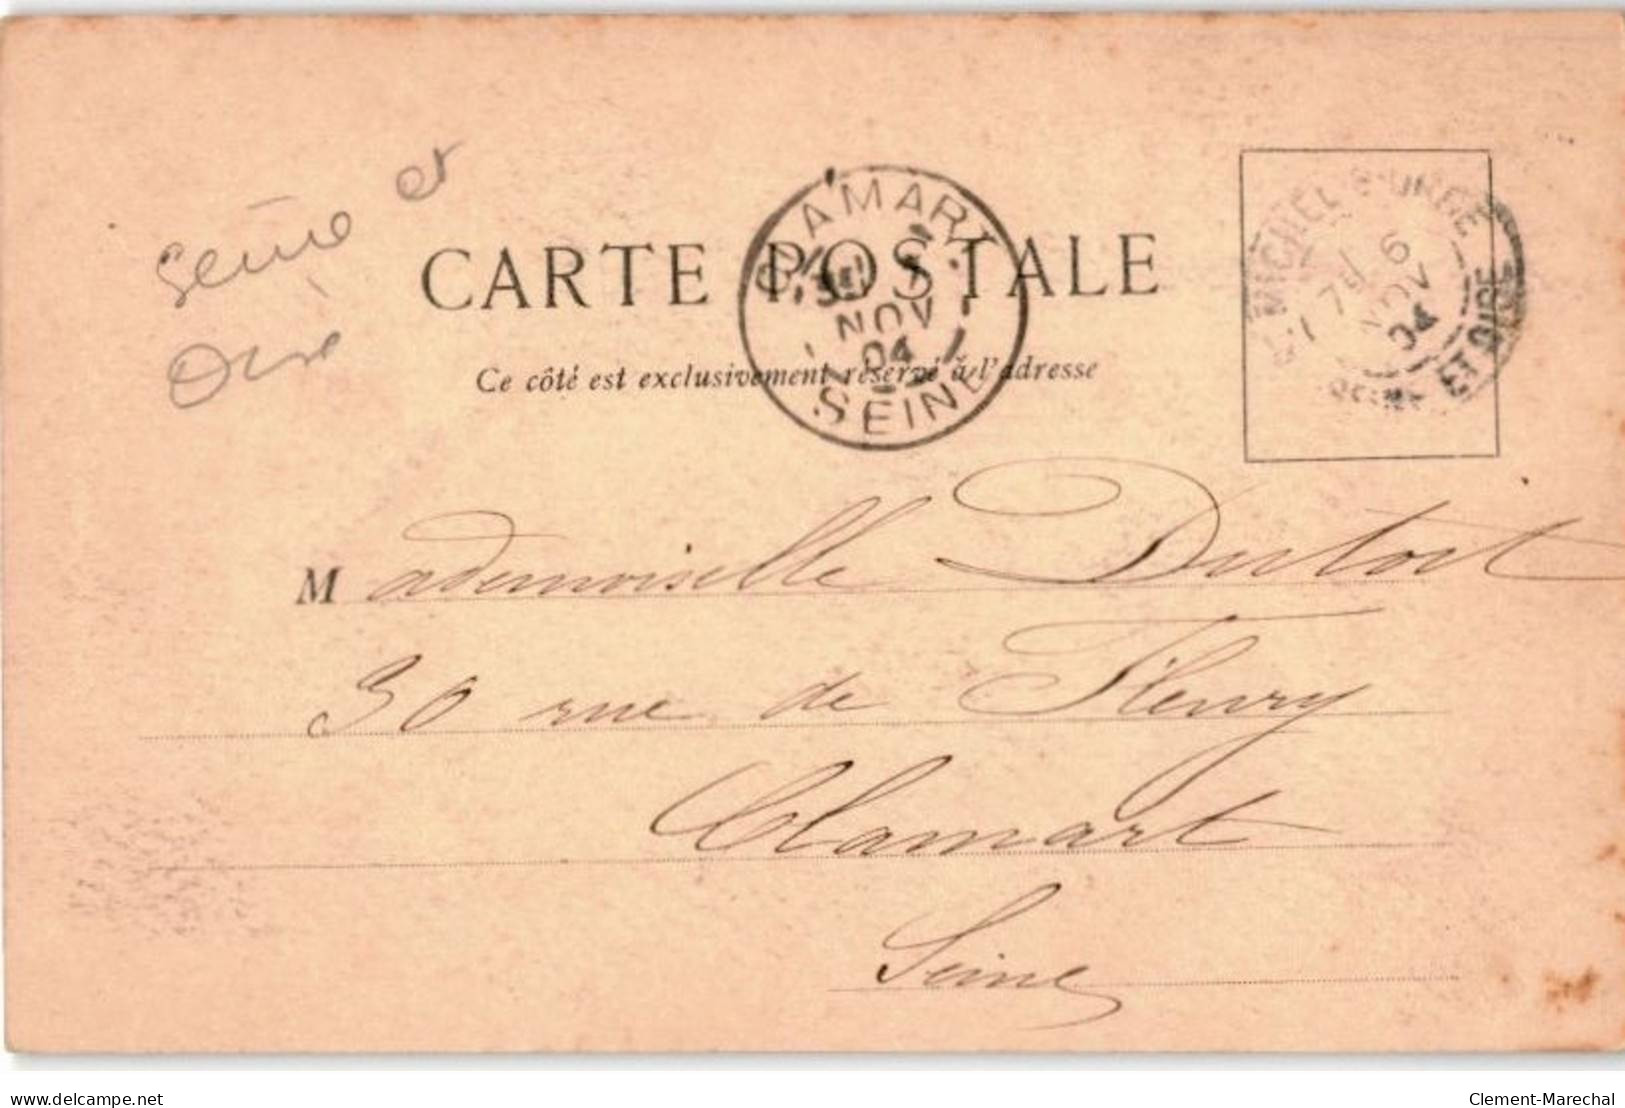 Seine et
Oise
CARTE POSTALE
Ce côté est exclusivement réservé à l'adresse
CLAMART
NOV
04
SEINE
ST MICHEL S-ORGE
6
NOV
04
SEINE ET OISE
Mademoiselle Dutoit
30 rue de Fleury
Clamart
Seine
delcampe.net
Clement-Marechal